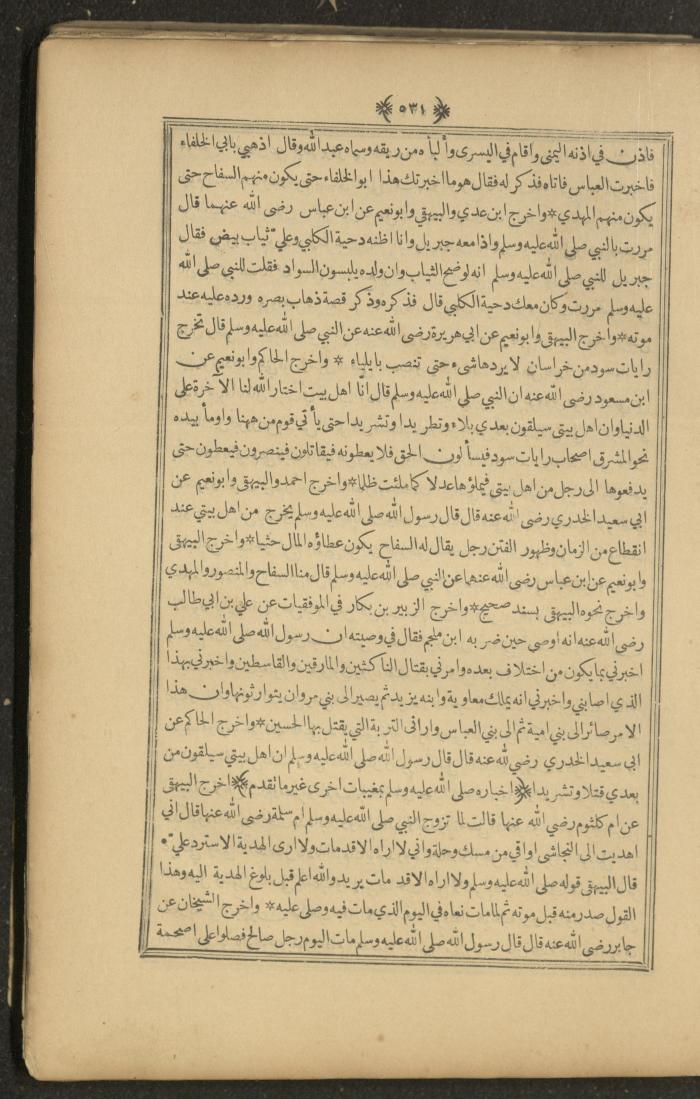 ﴿ ٥٣١ ﴾
فاذن في اذنه اليمنى واقام في اليسرى وألبأه من ريقه وسماه عبدالله وقال اذهبي بابي الخلفاء
فاخبرت العباس فاتاه فذكر له فقال هو ما اخبرتك هذا ابو الخلفاء حتى يكون منهم السفاح حتى
يكون منهم المهدي * واخرج ابن عدي والبيهقي وابونعيم عن ابن عباس رضى الله عنهما قال
مررت بالنبي صلى الله عليه وسلم واذا معه جبريل وانا اظنه دحية الكلبي وعليّ ثياب بيض فقال
جبريل للنبي صلى الله عليه وسلم انه لوضح الثياب وان ولده يلبسون السواد فقلت للنبي صلى الله
عليه وسلم مررت وكان معك دحية الكلبي قال فذكره وذكر قصة ذهاب بصره ورده عليه عند
موته * واخرج البيهقي وابونعيم عن ابي هريرة رضى الله عنه عن النبي صلى الله عليه وسلم قال تخرج
رايات سود من خراسان لا يردها شيء حتى تنصب بايلياء * واخرج الحاكم وابونعيم عن
ابن مسعود رضى الله عنه ان النبي صلى الله عليه وسلم قال انّا اهل بيت اختار الله لنا الآخرة على
الدنيا وان اهل بيتي سيلقون بعدي بلاء وتطريدا وتشريدا حتى يأتي قوم من ههنا واومأ بيده
نحو المشرق اصحاب رايات سود فيسألون الحق فلا يعطونه فيقاتلون فينصرون فيعطون حتى
يدفعوها الى رجل من اهل بيتي فيملؤها عدلا كما ملئت ظلما * واخرج احمد والبيهقي وابونعيم عن
ابي سعيد الخدري رضى الله عنه قال قال رسول الله صلى الله عليه وسلم يخرج من اهل بيتي عند
انقطاع من الزمان وظهور الفتن رجل يقال له السفاح يكون عطاؤه المال حثيا * واخرج البيهقي
وابونعيم عن ابن عباس رضى الله عنهما عن النبي صلى الله عليه وسلم قال منا السفاح والمنصور والمهدي
واخرج نحوه البيهقي بسند صحيح * واخرج الزبير بن بكار في الموفقيات عن علي بن ابي طالب
رضى الله عنه انه اوصى حين ضربه ابن ملجم فقال في وصيته ان رسول الله صلى الله عليه وسلم
اخبرني بما يكون من اختلاف بعده وامرني بقتال الناكثين والمارقين والقاسطين واخبرني بهذا
الذي اصابني واخبرني انه يملك معاوية وابنه يزيد ثم يصير الى بني مروان يتوارثونها وان هذا
الامر صائر الى بني امية ثم الى بني العباس وارانى التربة التي يقتل بها الحسين * واخرج الحاكم عن
ابي سعيد الخدري رضي الله عنه قال قال رسول الله صلى الله عليه وسلم ان اهل بيتي سيلقون من
بعدي قتلا وتشريدا ﴿ اخباره صلى الله عليه وسلم بمغيبات اخرى غير ما تقدم ﴾ اخرج البيهقي
عن ام كلثوم رضي الله عنها قالت لما تزوج النبي صلى الله عليه وسلم ام سلمة رضى الله عنها قال اني
اهديت الى النجاشى اواقي من مسك وحلة واني لا اراه الاقد مات ولا ارى الهدية الا سترد عليّ
قال البيهقي قوله صلى الله عليه وسلم ولا اراه الاقد مات يريد والله اعلم قبل بلوغ الهدية اليه وهذا
القول صدر منه قبل موته ثم لما مات نعاه في اليوم الذي مات فيه وصلى عليه * واخرج الشيخان عن
جابر رضى الله عنه قال قال رسول الله صلى الله عليه وسلم مات اليوم رجل صالح فصلوا على اصحمة